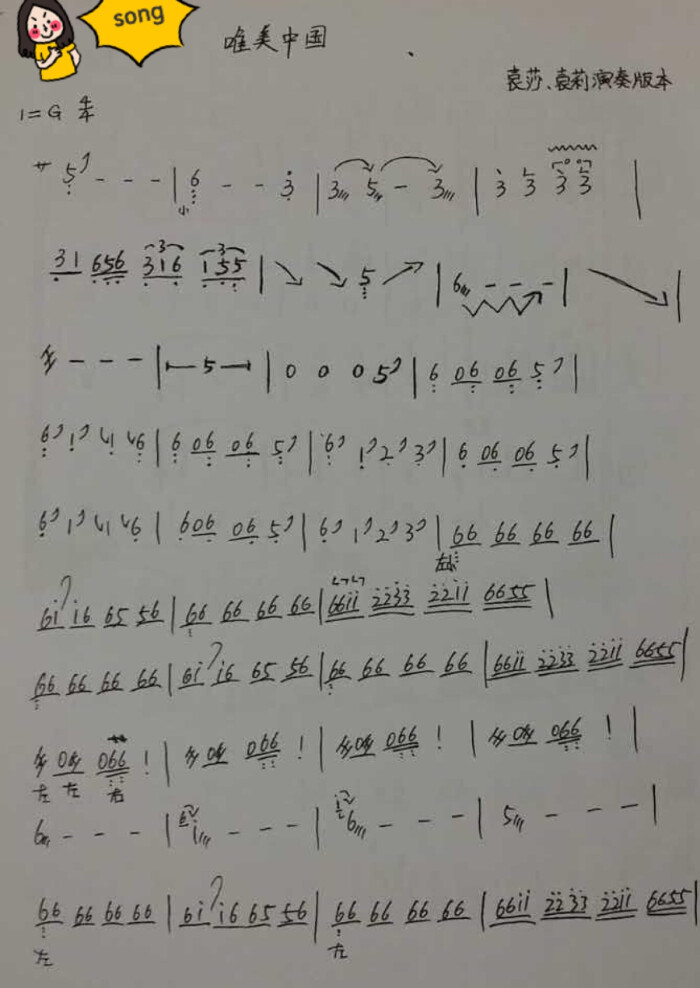 song
唯美中国
袁莎、袁莉演奏版本
1=G 4/4
サ 5 - - - | 6 - - 3 | 3 5 - 3 | 3 3 3 3 |
小
31 656 316 155 | 5 | 6 - - - | |
3 3
- - - | 5 | 0 0 0 5 | 6 06 06 5 |
6 1 1 6 | 6 06 06 5 | 6 1 2 3 | 6 06 06 5 |
6 1 1 6 | 606 06 5 | 6 1 2 3 | 66 66 66 66 |
左
6i i6 65 56 | 66 66 66 66 | 66ii 2233 22ii 6655 |
66 66 66 66 | 6i i6 65 56 | 66 66 66 66 | 66ii 2233 22ii 6655 |
066 ! | 066 ! | 066 ! | 066 ! |
左 左 右
6 - - - | i - - - | 6 - - - | 5 - - - |
66 66 66 66 | 6i i6 65 56 | 66 66 66 66 | 66ii 2233 22ii 6655 |
左 左